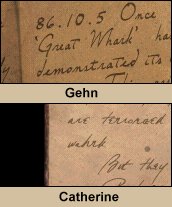 86.10.5 Once
'Great Whark' has
demonstrated its
Gehn
are terrorised
wahrk
But they
Catherine